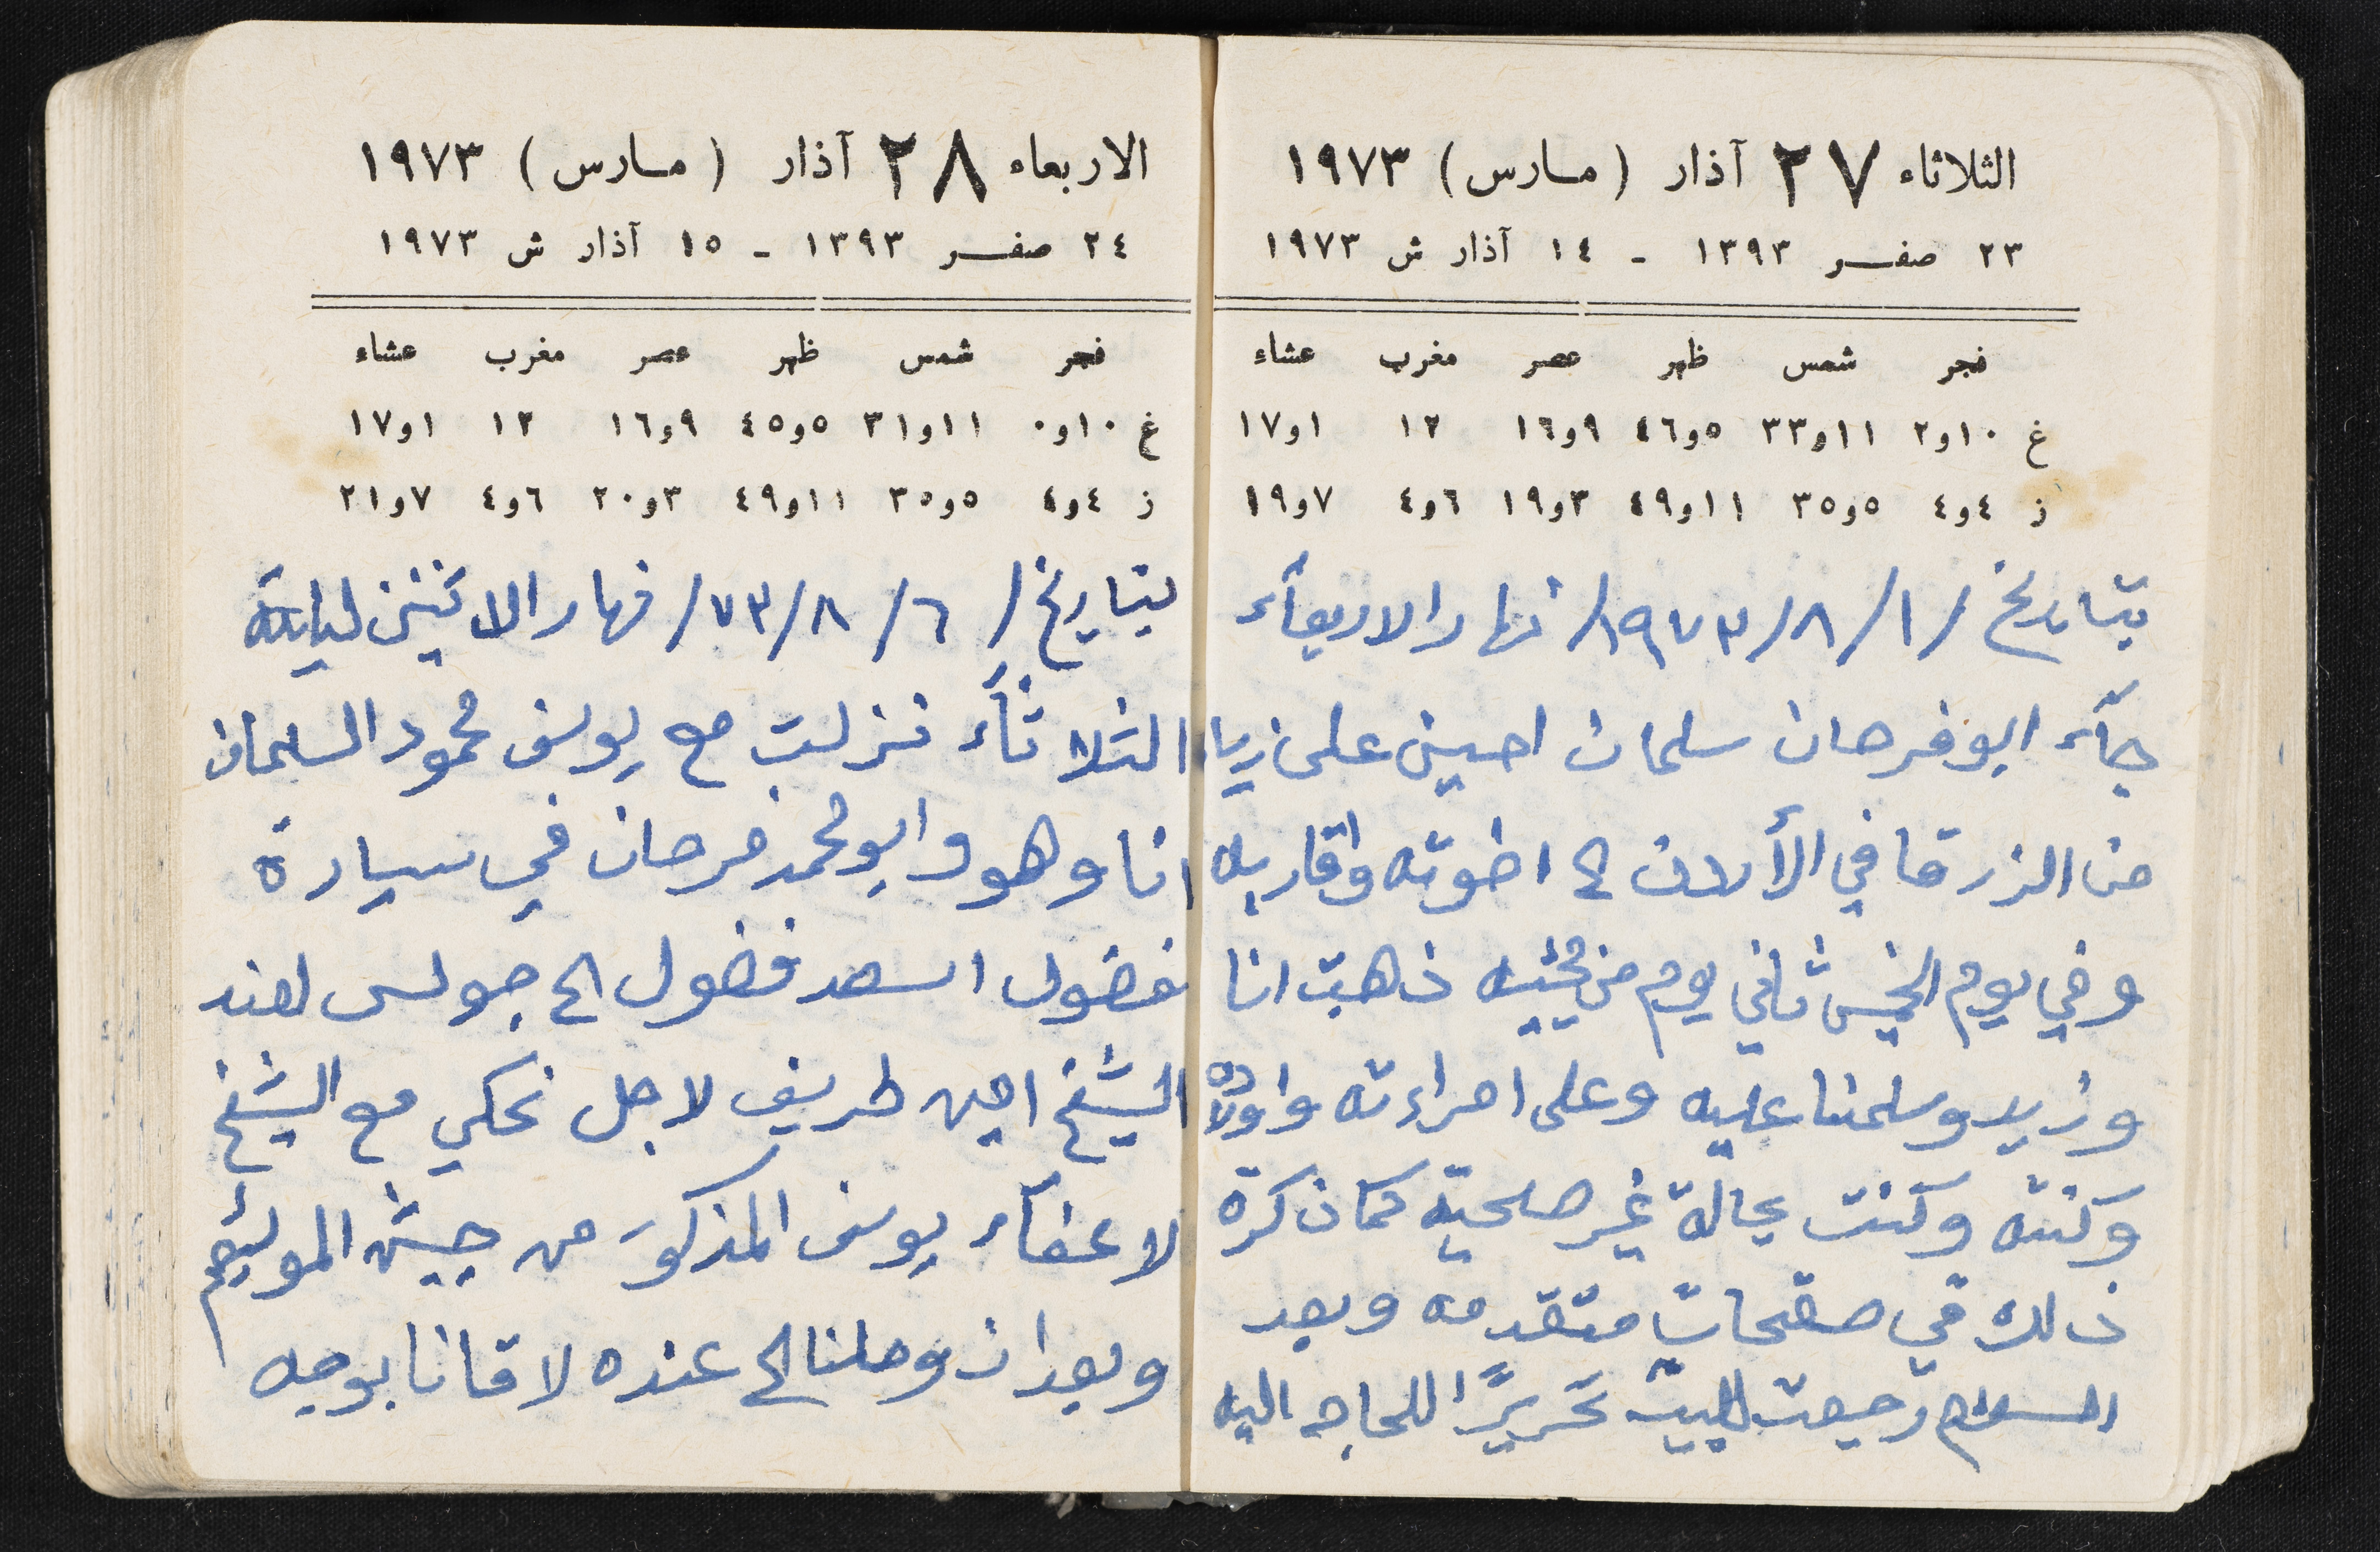 الثلاثاء ٢٧ آذار (مارس) ١٩٧٣
٢٣ صفر ١٣٩٣ - ١٤ آذار ش ١٩٧٣
فجر شمس ظهر عصر مغرب عشاء
غ ١٠و٢ ١١و٣٣ ٥و٤٦ ٩و١٦ ١٢ ١و١٧
ز ٤و٤ ٥و٣٥ ١١و٤٩ ٣و١٩ ٦و٤ ٧و١٩
بتاريخ /١/٨/١٩٧٣/ نهار الاربعآء
جآء ابو فرحان سلمان احسين على زياره
من الزرقا في الأردن الى اخوته واقاربه
وفي يوم الخميس ثاني يوم من مجيئه ذهبت انا
وزيد وسلمنا عليه وعلى امراءته واولاده
وكنته وكنت بحالة غير صحيه كمان كرة
ذلك في صفحات متقدمه وبعد
السلام رجعت للبيت تحريرًا للحاجه اليه
الاربعاء ٢٨ آذار (مارس) ١٩٧٣
٢٤ صفر ١٣٩٣ - ١٥ آذار ش ١٩٧٣
فجر شمس ظهر عصر مغرب عشاء
غ ١٠و٠ ١١و٣١ ٥و٤٥ ٩و١٦ ١٢ ١و١٧
ز ٤و٤ ٥و٣٥ ١١و٤٩ ٣و٢٠ ٦و٤ ٧و٢١
بتاريخ /٦/٨/٧٣/ نهار الاثنين ليلة
الثلاثآء نزلت مع يوسف محمود السلمان
انا وهو وابو محمد فرحان في سيارة
فضول اسعد فضول الى جولس لعند
الشيخ امين طريف لاجل نحكي مع الشيخ
لاعفآء يوسف المذكور من جيش
وبعد ان وصلنا الى عنده لاقانا بوجه